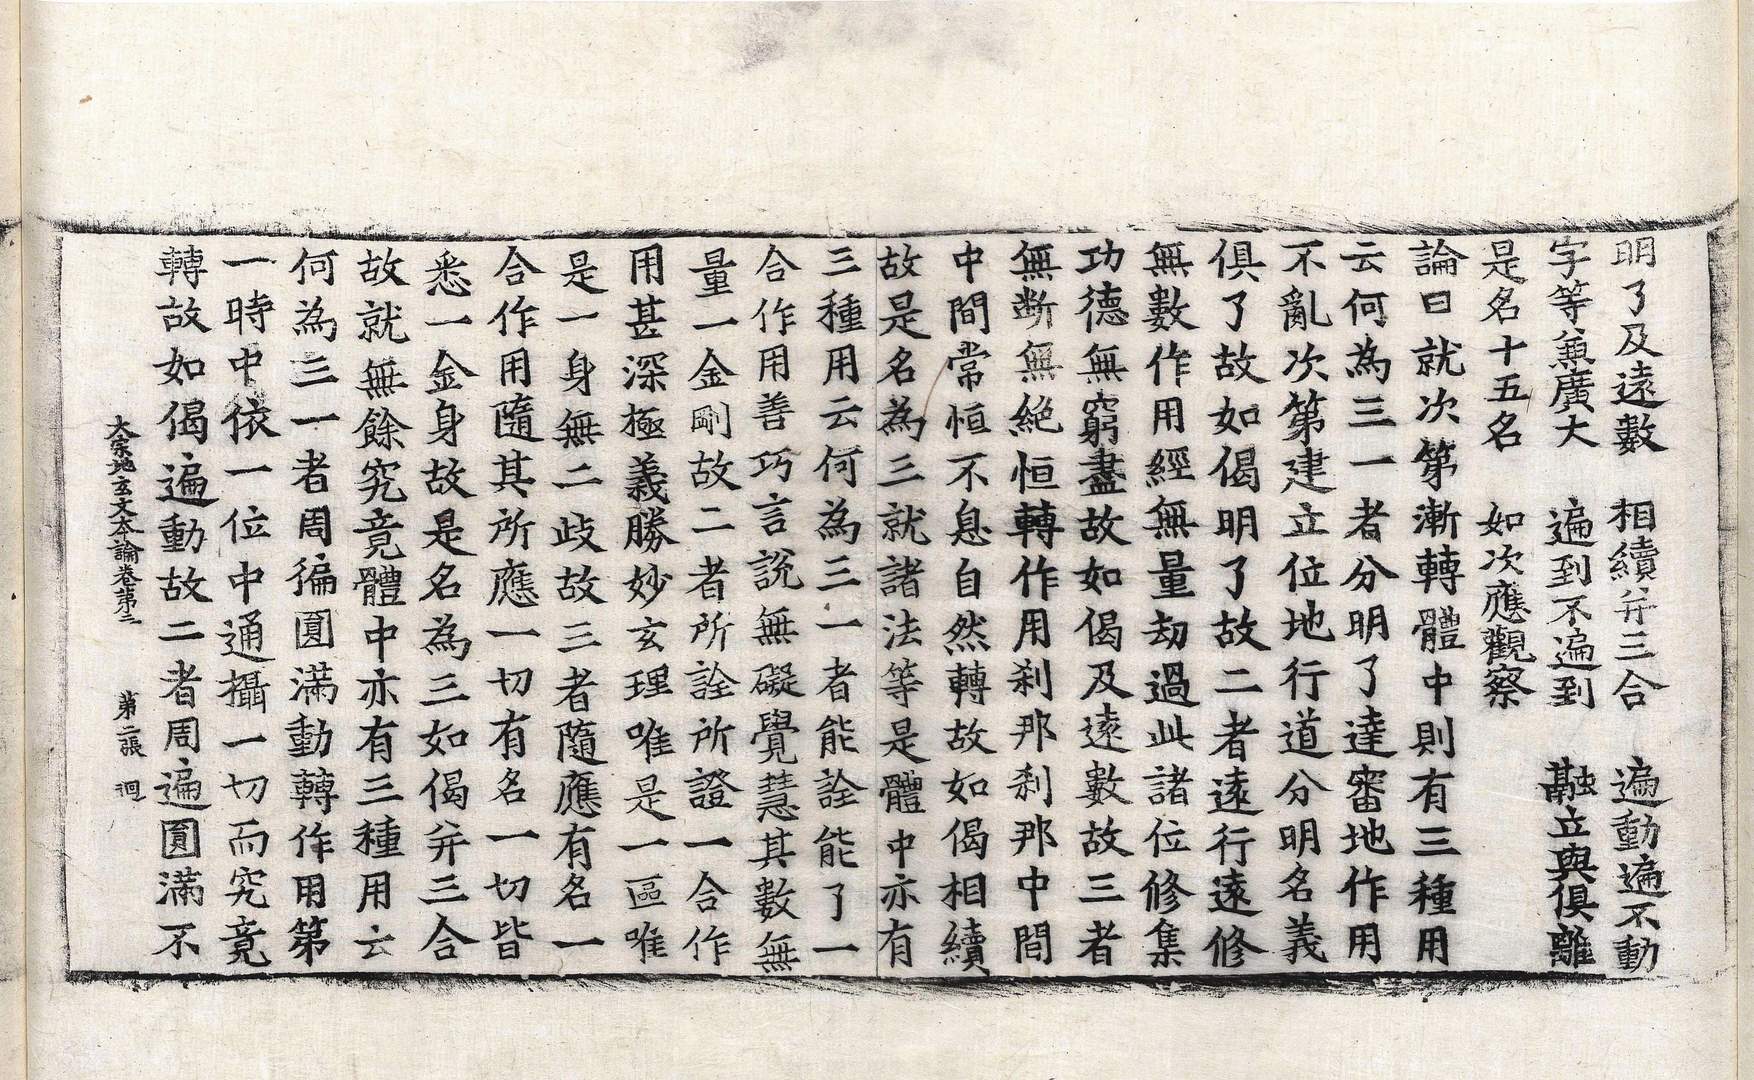 明了及遠數　相續并三合　遍動遍不動
字等兼廣大　遍到不遍到　融立與俱離
是名十五名　如次應觀察
論曰就次第漸轉體中則有三種用
云何為三一者分明了達審地作用
不亂次第建立位地行道分明名義
俱了故如偈明了故二者遠行遠修
無數作用經無量劫過此諸位修集
功德無窮盡故如偈及遠數故三者
無断無絕恒轉作用刹那刹那中間
中間常恒不息自然轉故如偈相續
故是名為三就諸法等是體中亦有
三種用云何為三一者能詮能了一
合作用善巧言說無礙覺慧其數無
量一金剛故二者所詮所證一合作
用甚深極義勝妙玄理唯是一區唯
是一身無二歧故三者隨應有名一
合作用隨其所應一切有名一切皆
悉一金身故是名為三如偈并三合
故就無餘究竟體中亦有三種用云
何為三一者周徧圓滿動轉作用第
一時中依一位中通攝一切而究竟
轉故如偈遍動故二者周遍圓滿不
大宗地玄文本論卷第三　第二張　迴